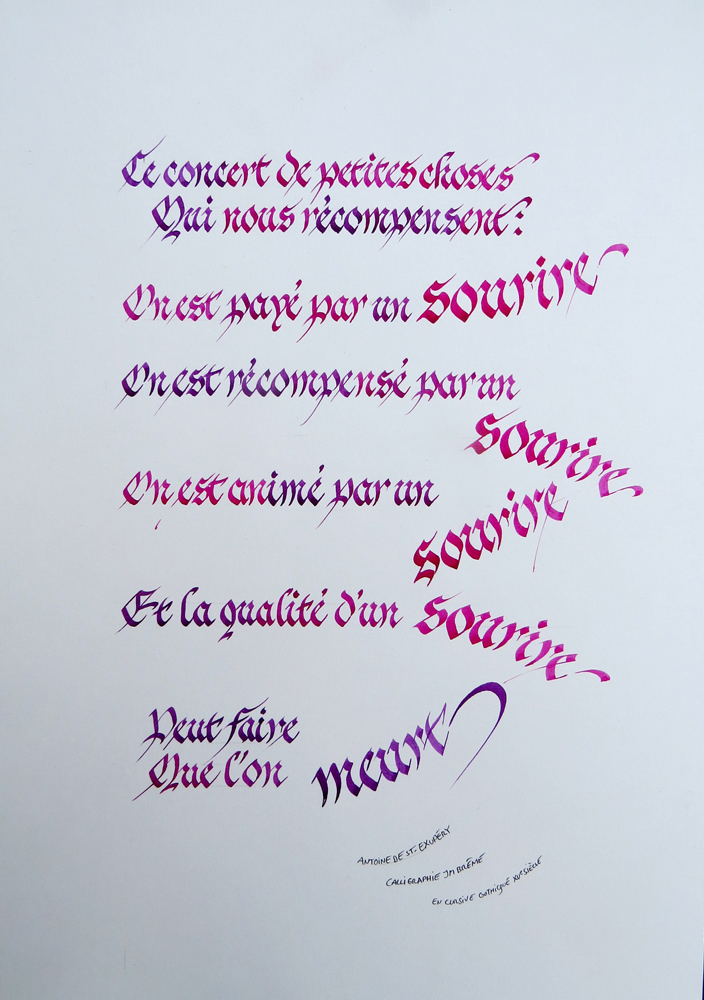 Ce concert de petites choses
Qui nous récompensent :
On est payé par un sourire
On est récompensé par un
sourire
On est animé par un
sourire
Et la qualité d'un sourire
Peut faire
Que l'on meurt
ANTOINE DE ST-EXUPÉRY
CALLIGRAPHIE JM BRÊME
EN CURSIVE GOTHIQUE XVᵉ SIÈCLE